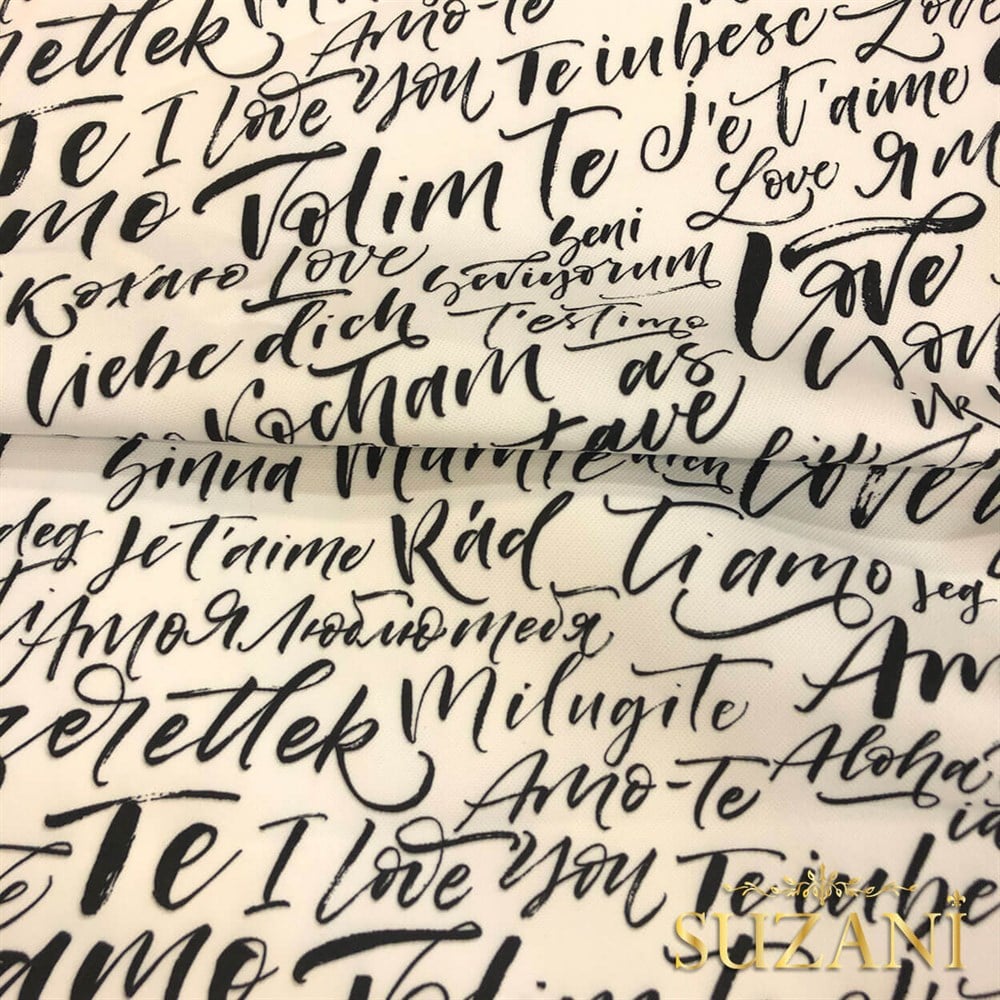 Amo-te
Te I love you Te iubesc Love
mo Volim te J'e t'aime
Love Ям
Кохаю Love seni seviyorum Love
Liebe dich t'estimo
Kocham as
ik
sinua dich live
deg Je t'aime Rád Ti amo Jeg
Amo Я люблю тебя
zeretlek Milugite Am
Amo-Te Aloha
Te I love you Te iube
amo
SUZANİ